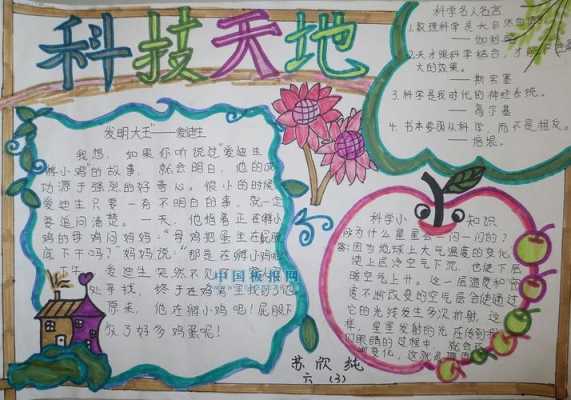 科技天地
发明大王"——爱迪生
我想，如果你听说过"爱迪生
孵小鸡"的故事，就会明白，他的成
功源于强烈的好奇心。很小的时候
爱迪生只要一有不明白的事，就一定
要追问清楚。一天，他指着正在孵小
鸡的母鸡问妈妈："母鸡把蛋坐在屁股
底下干吗？"妈妈说："那是在孵小鸡
爱迪生突然不见
处寻找，终于在鸡窝里找到了他
原来，他在孵小鸡呢！屁股下
放了好多鸡蛋呢！
中国板报网
科学名人名言
1.数理科学是大自然
——伽利略
2.天才跟科学结合，才能
大的效果。
——斯宾塞
3.科学是我时代的神经系统。
——高尔基
4.书本要跟从科学，而不是相反。
——培根。
科学小知识
问为什么星星会一闪一闪的？
答：因为地球上大气温度的变化
使上层冷空气下沉，也使下层
暖空气上升。这一层温度和密
度不断改变的空气层会使通过
它的光线发生多次折射，这
样，星星发射的光在传到我
们眼睛的过程中，就会
变化，这就
苏欣纯
六（3）